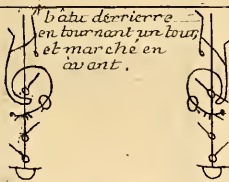 bâtu derrierre
en tournant un tour,
et marché en
avant.